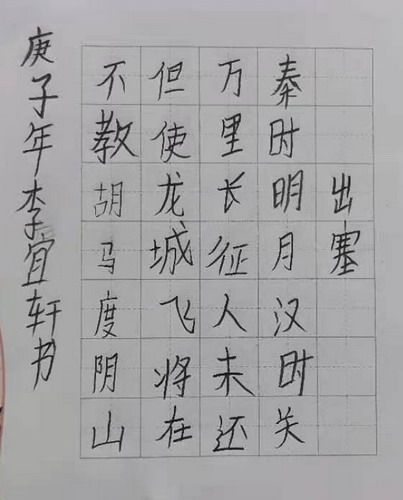 出塞
秦时明月汉时关
万里长征人未还
但使龙城飞将在
不教胡马度阴山
庚子年李宜轩书